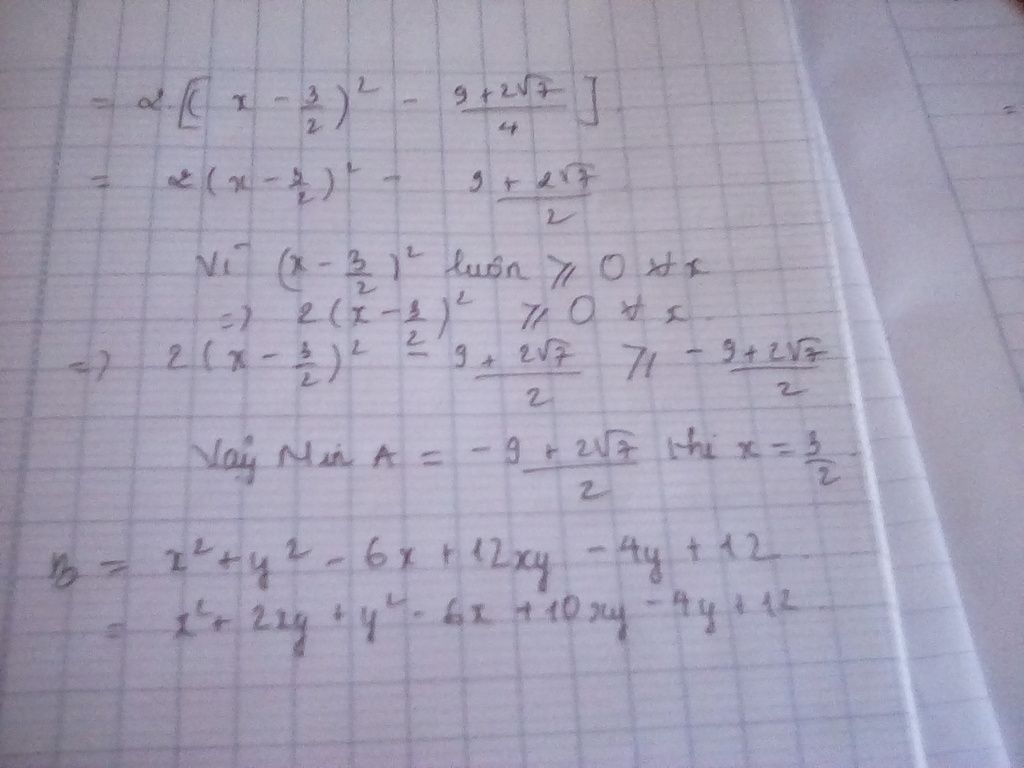 = 2.[(x - 3/2)² - (9+2√7)/4]
= 2(x - 3/2)² - (9+2√7)/2
Vì (x - 3/2)² luôn ≥ 0 ∀x
=> 2(x - 3/2)² ≥ 0 ∀x
=> 2(x - 3/2)² - (9+2√7)/2 ≥ -(9+2√7)/2
Vậy Min A = -(9+2√7)/2 khi x = 3/2.
B = x² + y² - 6x + 12xy - 4y + 12
= x² + 2xy + y² - 6x + 10xy - 4y + 12
=